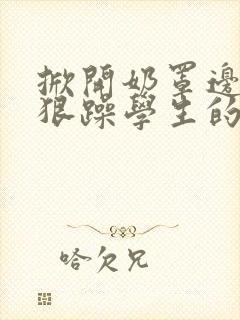 掀開奶罩邊
狠躁學生的
哈欠兄